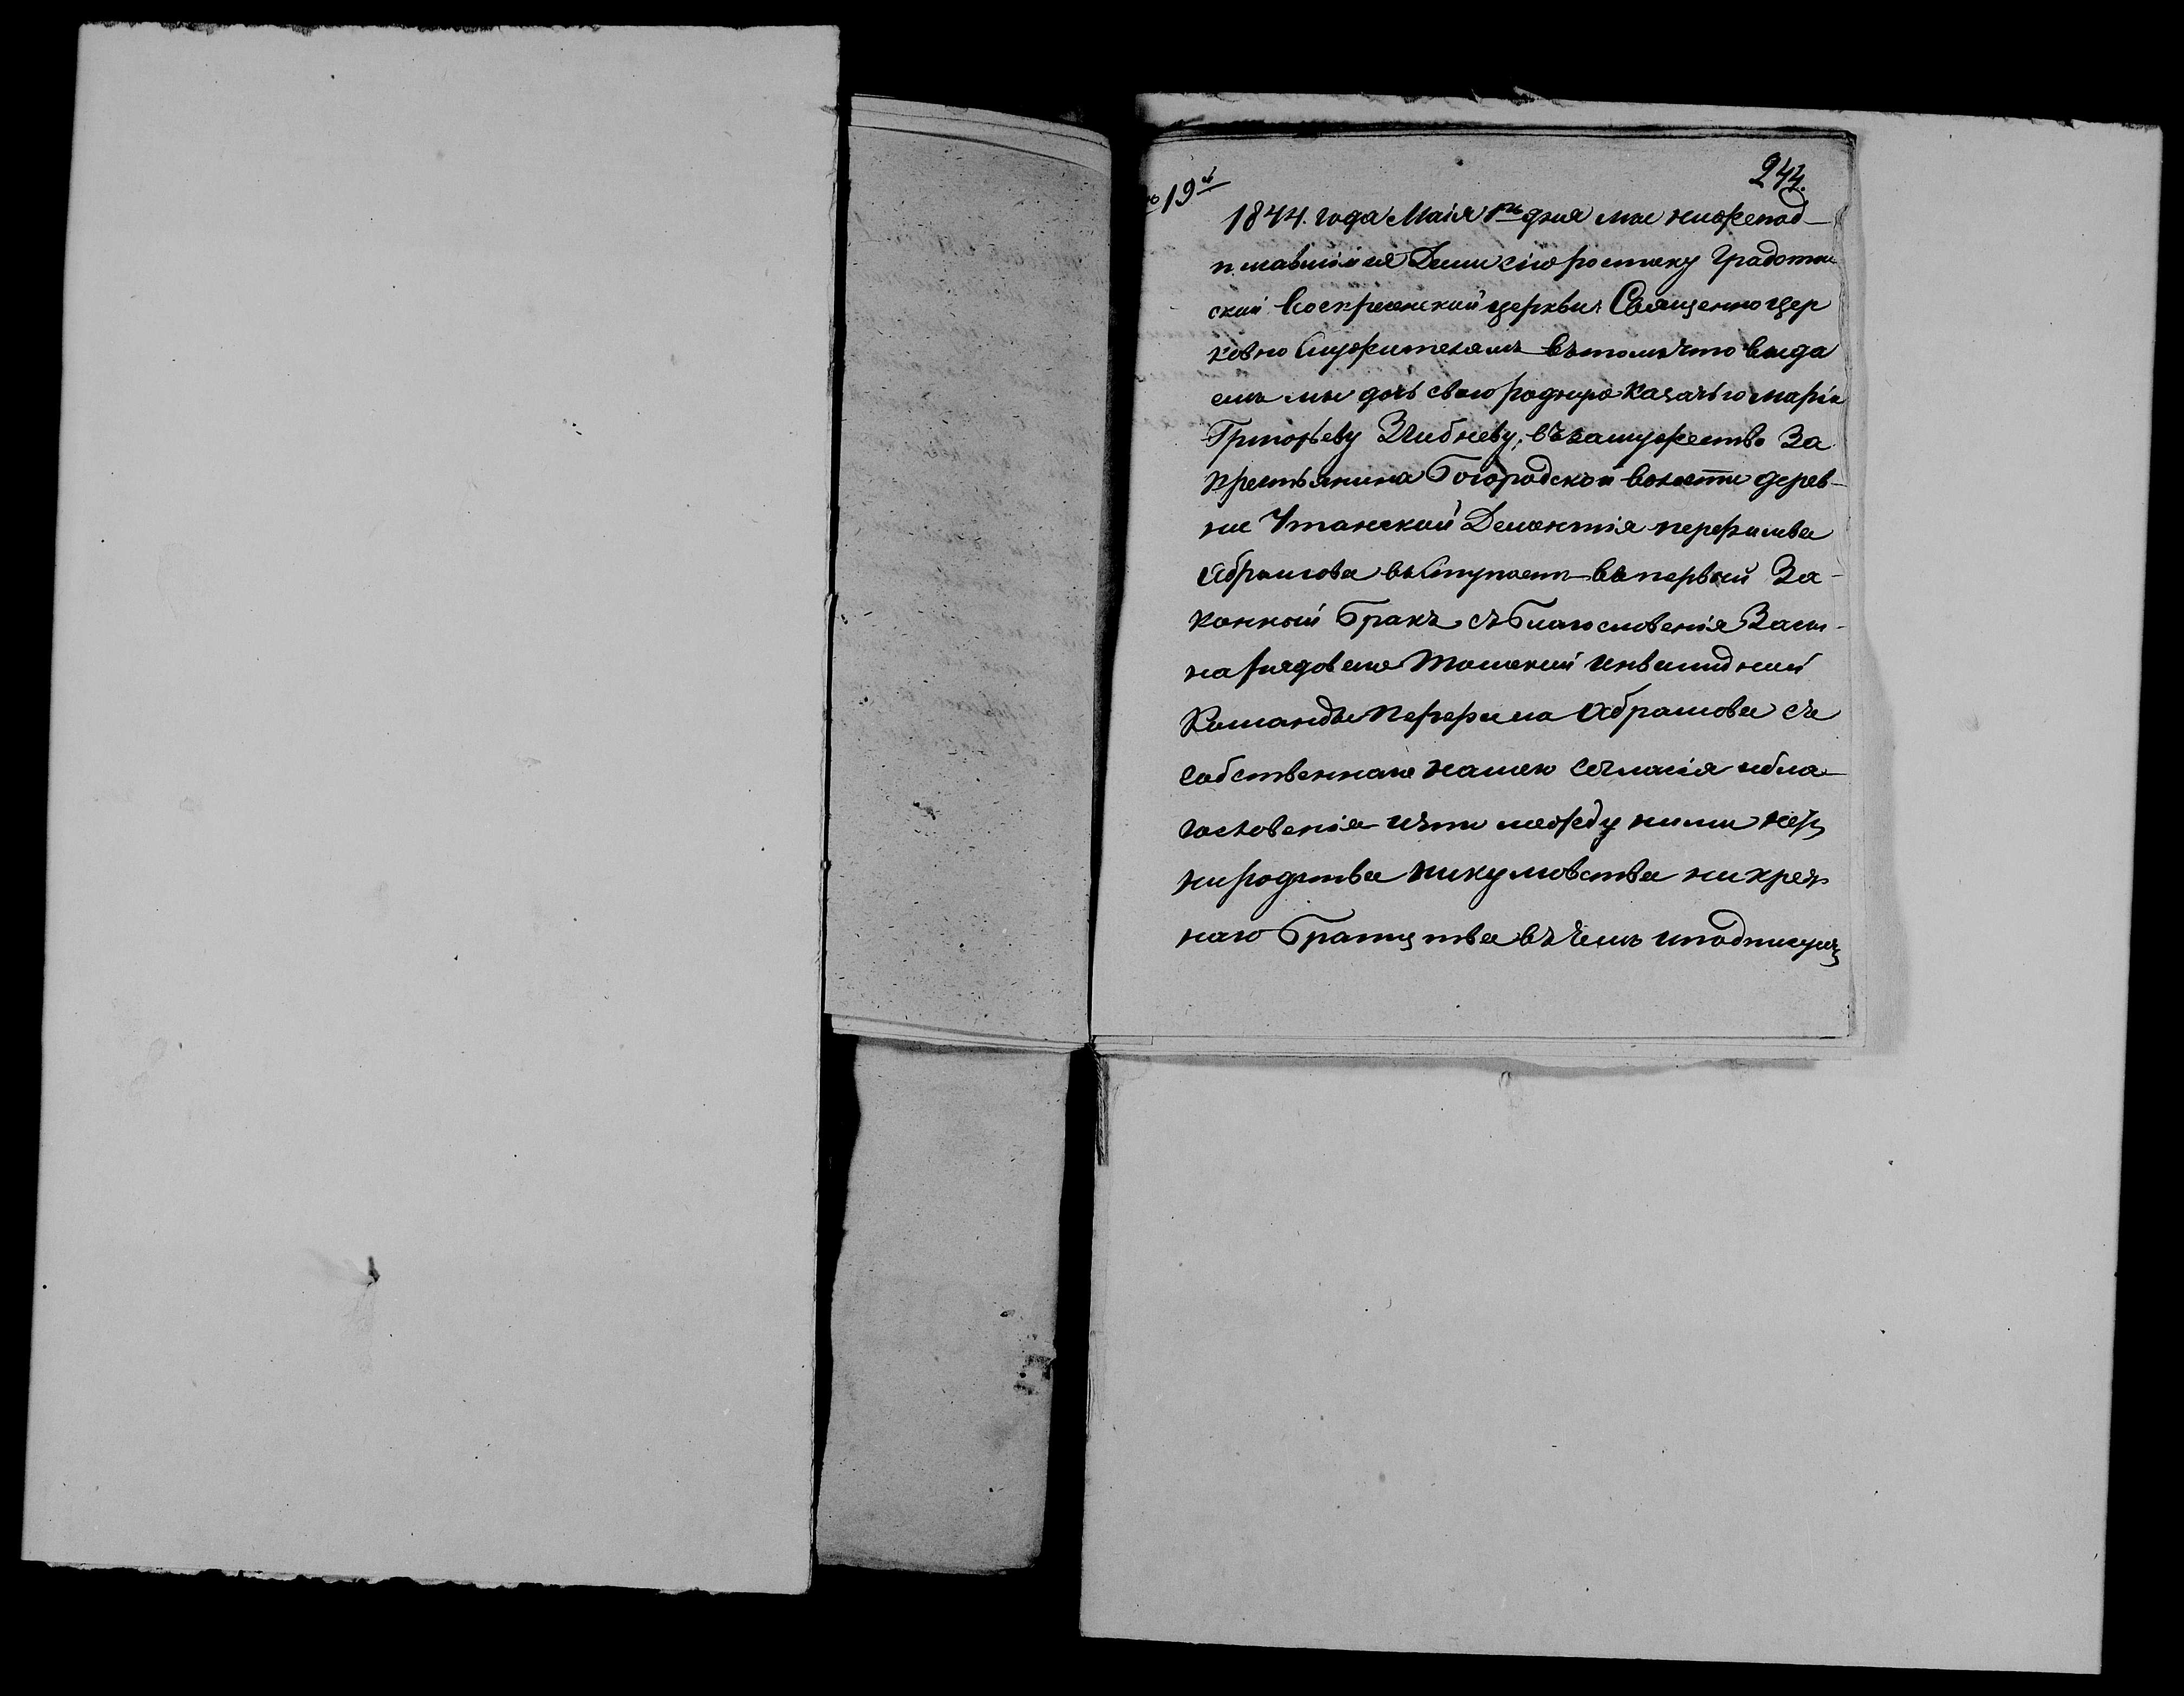 244.
19й
1844. года Маія 1го дня мы нижепод-
писавшіися Дали сію росписку Градотом
ской Воскресенской церкви Священноцер
ковно Служителямъ вътомъ что выда
емъ мы дочь свою родную казачью марію
Григорьеву Зибневу, въ замужество За
крестьянина Богородской волости дерев-
не Утанской Дементія перфильева
Абрамова въ Ступаетъ въ первый За-
конный Бракъ съ Благословенія Заси-
на рядоваго Томской инвалидной
Команды Перфила Абрамова съ
собственнаго нашего согласія и бла-
гословенія и что между ними нетъ
ни родства ни кумовства ни крес
наго Братцтва въ чемъ и подписуемъ